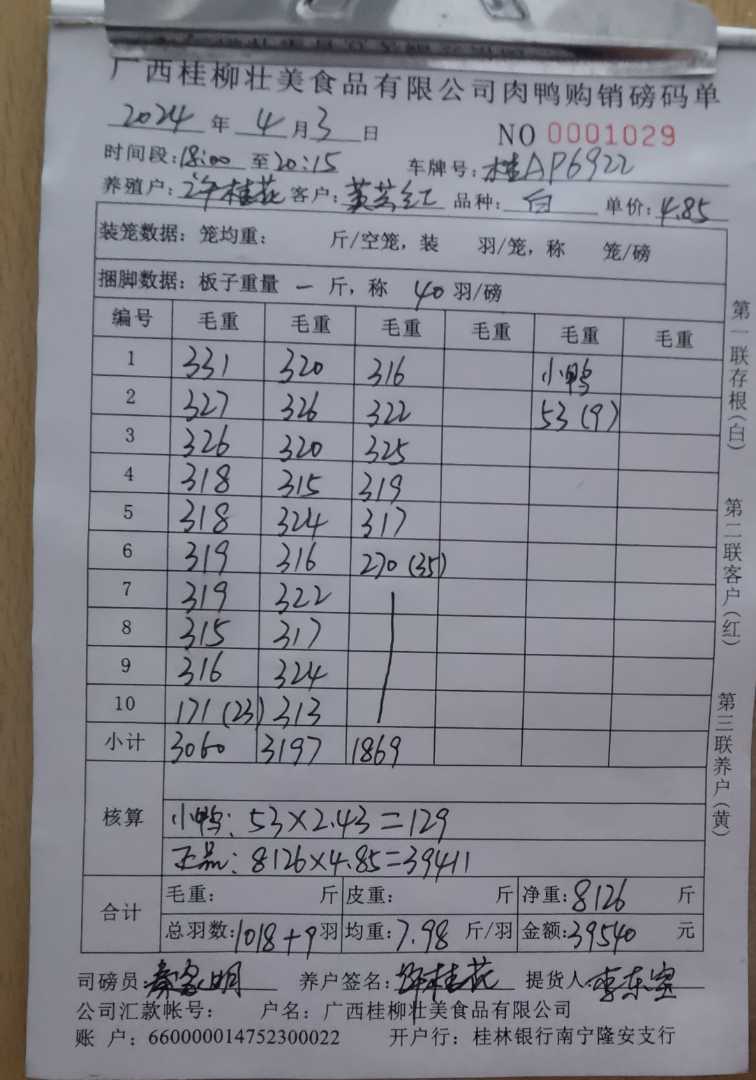 广西桂柳壮美食品有限公司肉鸭购销磅码单
2024 年 4 月 3 日 NO 0001029
时间段:18:00 至 20:15 车牌号:桂AP6922
养殖户:许桂花 客户:黄芸红 品种:白 单价:4.85
装笼数据:笼均重: 斤/空笼,装 羽/笼,称 笼/磅
捆脚数据:板子重量 一 斤,称 40 羽/磅
编号 毛重 毛重 毛重 毛重 毛重 毛重
1 331 320 316 小鸭
2 327 326 322 53(9)
3 326 320 325
4 318 315 319
5 318 324 317
6 319 316 270(35)
7 319 322
8 315 317
9 316 324
10 171(23) 313
小计 3060 3197 1869
核算
小鸭:53×2.43=129
正品:8126×4.85=39411
合计
毛重: 斤 皮重: 斤 净重:8126 斤
总羽数:1018+9羽 均重:7.98 斤/羽 金额:39540 元
司磅员 明 养户签名:许桂花 提货人 李东
公司汇款帐号: 户名:广西桂柳壮美食品有限公司
账 户:660000014752300022 开户行:桂林银行南宁隆安支行
第一联存根(白)
第二联客户(红)
第三联养户(黄)